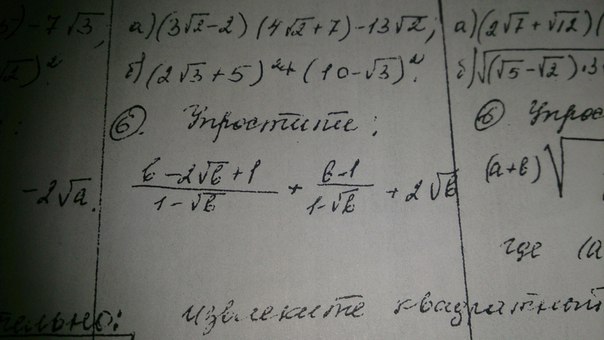 -7√3; а) (3√2-2) (4√2+7)-13√2; а) (2√7+√12)(
√2)². б) (2√3+5)²+(10-√3)². б) √(√5-√2)·3
⑥. Упростите: ⑥. Упрос
-2√a. (b-2√b+1)/(1-√b) + (b-1)/(1-√b) + 2√b (a+b)√
где (a
тельно: извлеките квадратный